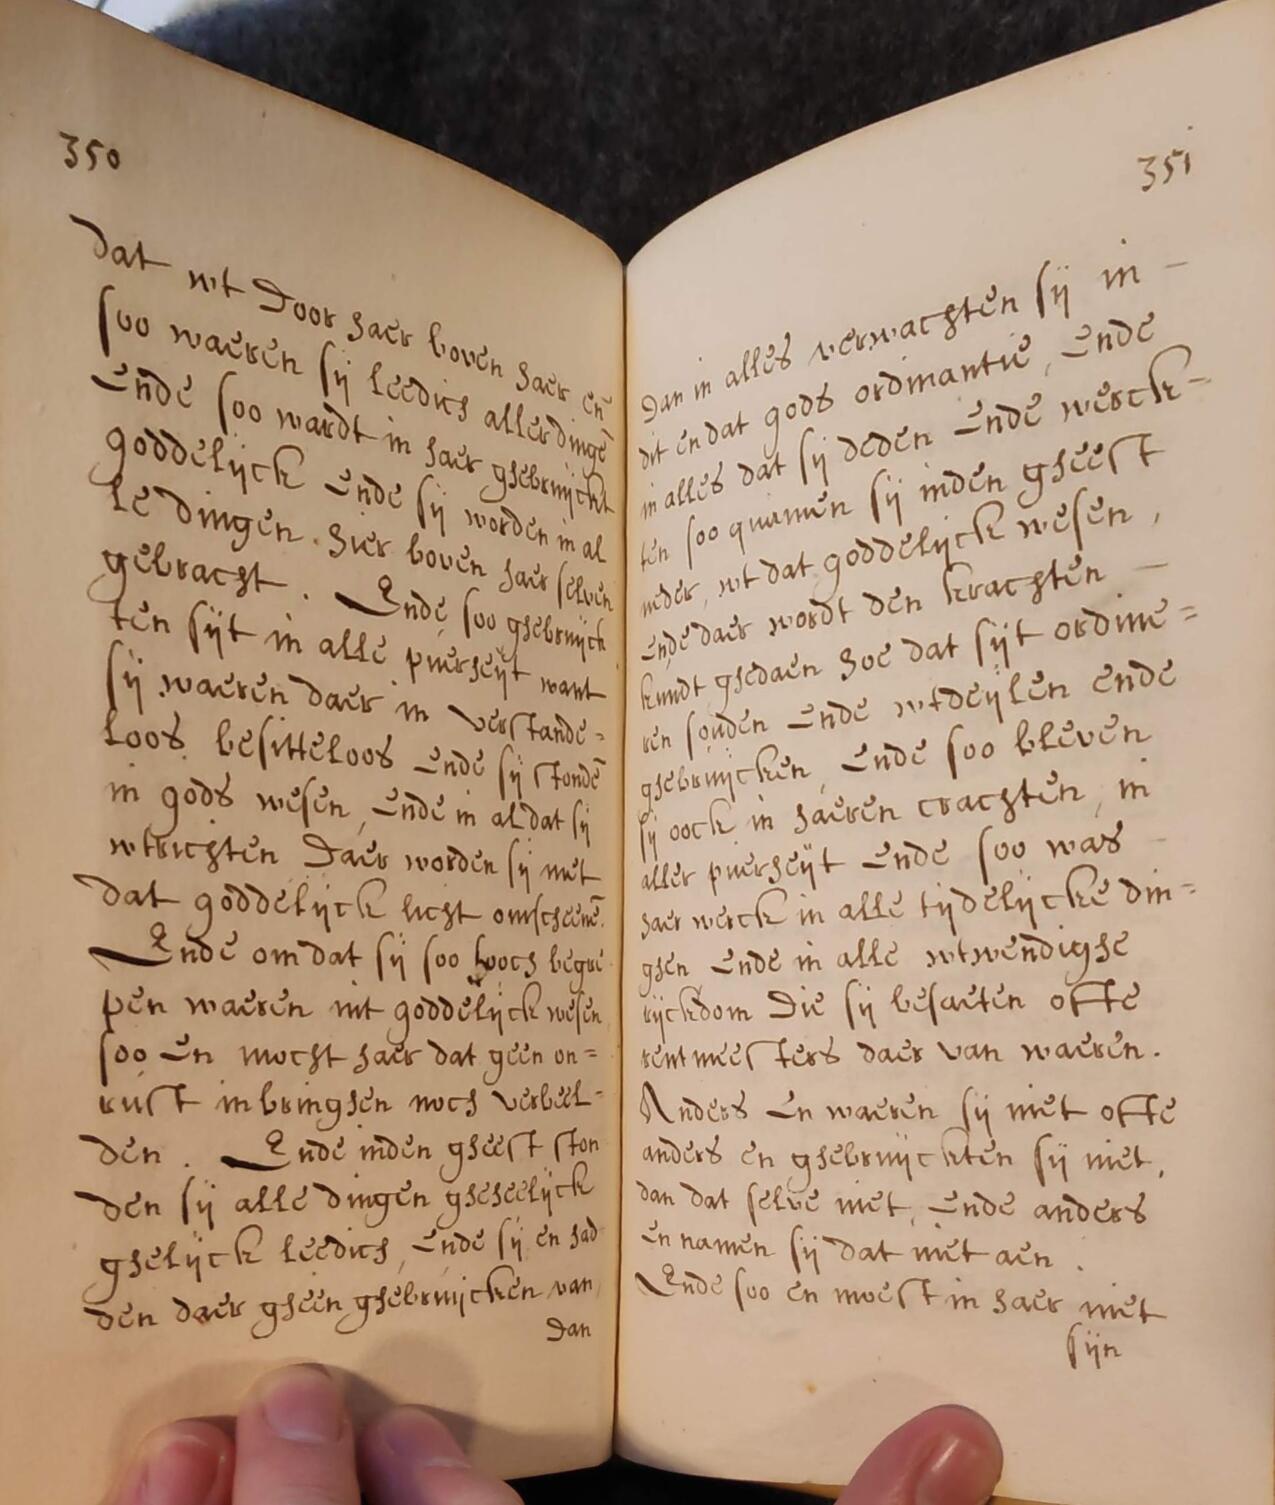 350
dat wt Door haer boven haer en̄
soo waeren sij leedich aller dingē
Ende soo wardt in haer ghebruijckt
goddelijck Ende sij worden in al
le dingen. hier boven haer selven
gebracht. Ende soo ghebruijck
ten sijt in alle puerheijt want
sij waeren daer in verstande=
loos besitteloos Ende sij stondē
in gods wesen, Ende in al dat sij
wtrichten Daer worden sij met
dat goddelijck licht omscheenē.
Ende om dat sij soo hooch begre
pen waeren int goddelijck wesen
soo En mocht haer dat geen on=
rust inbringhen noch verbeel=
den. Ende inden gheest ston
den sij alle dingen gheheelijck
ghelijck leedich, Ende sij en had
den daer gheen ghebruijcken van
Dan
351
Dan in alles verwachten sij in –
dit en dat gods ordinantie, Ende
in alles dat sij deden Ende werck=
ten soo quamen sij inden gheest
neder, wt dat goddelijck wesen,
Ende daer wordt den krachten –
kundt ghedaen hoe dat sijt ordine=
ren souden Ende wtdeijlen Ende
ghebruijcken, Ende soo bleven
sij oock in haeren crachten, in
aller puerheijt Ende soo was –
haer werck in alle tijdelijcke din=
ghen Ende in alle wtwendighe
rijckdom Die sij besaeten ofte
rentmeesters daer van waeren.
Anders En waeren sij niet ofte
anders en ghebruijckten sij niet,
dan dat selve niet, Ende anders
En namen sij dat niet aen.
Ende soo en moest in haer niet
sijn